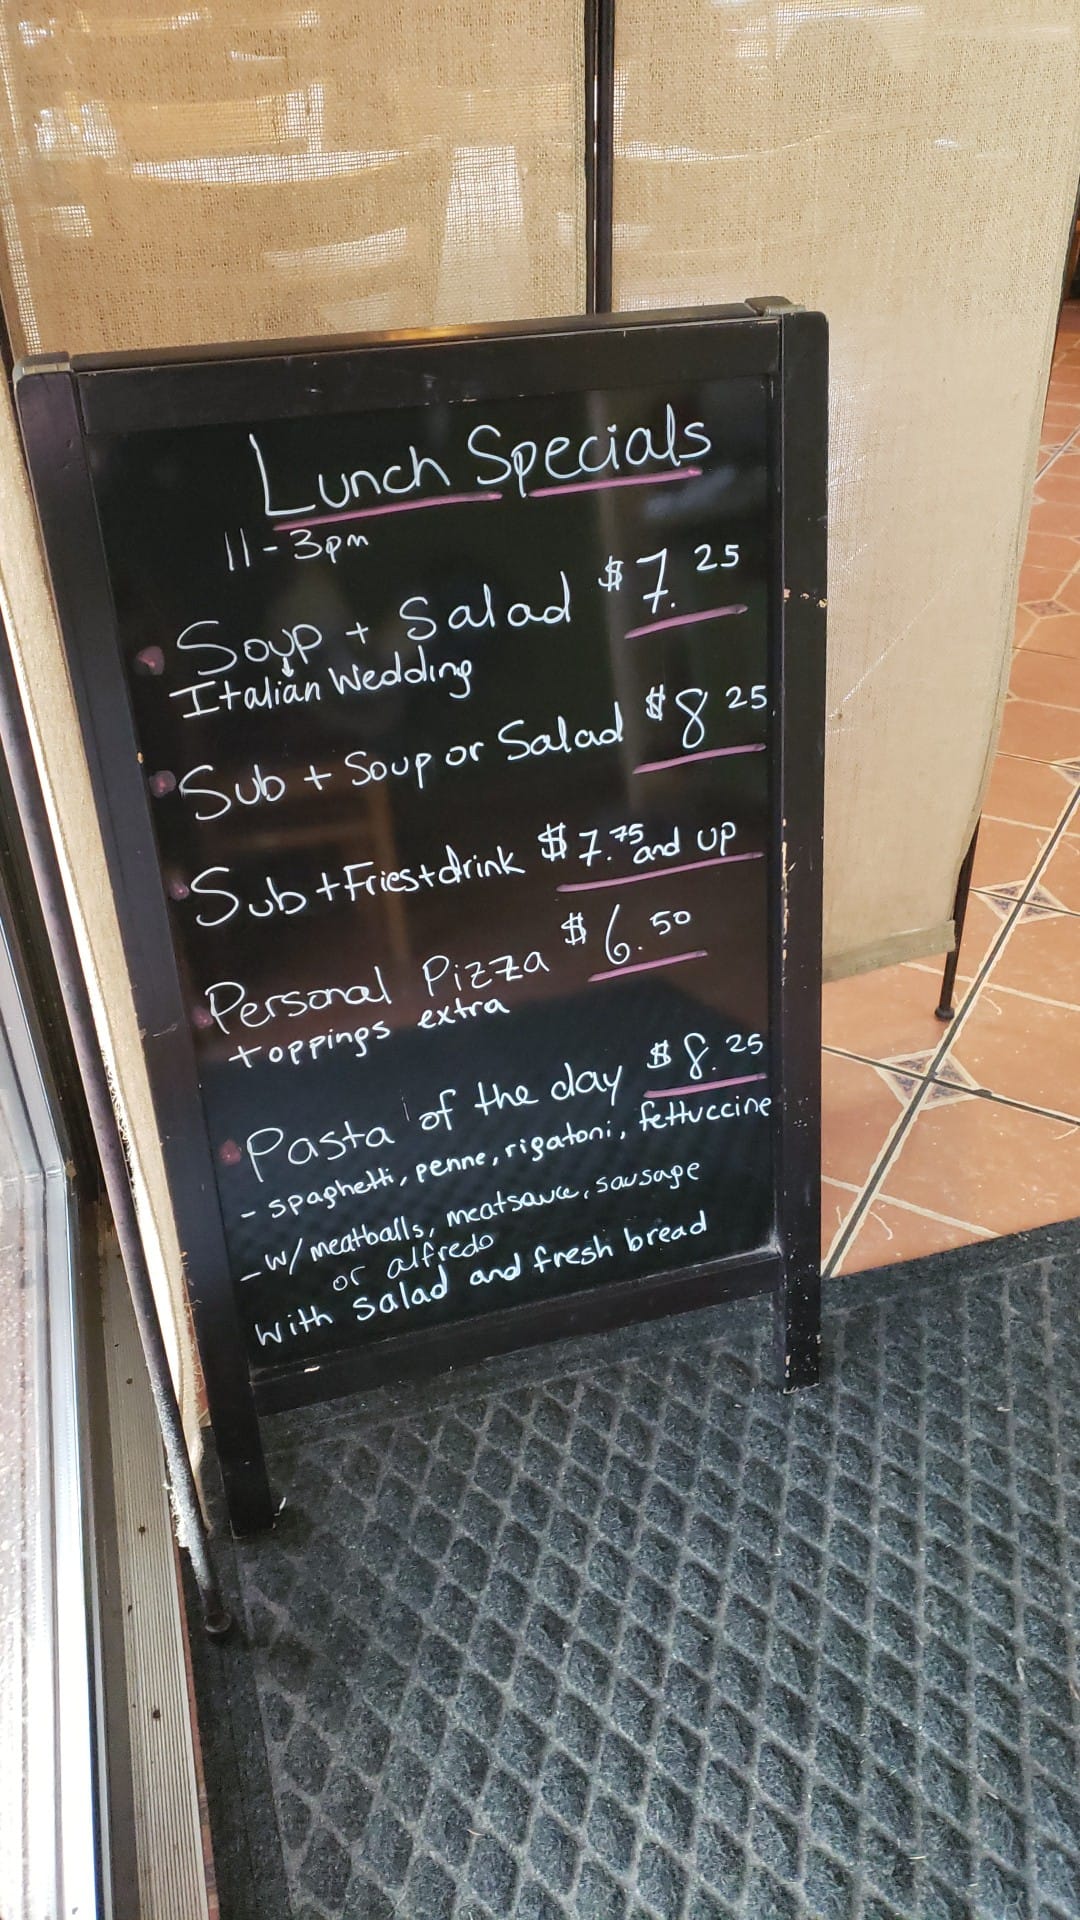 Lunch Specials
11-3pm
Soup + Salad $7.25
Italian Wedding
Sub + Soup or Salad $8 25
Sub + Fries + drink $7.75 and up
Personal Pizza $6.50
toppings extra
Pasta of the day $8.25
- spaghetti, penne, rigatoni, fettuccine
- w/ meatballs, meatsauce, sausage
or alfredo
with salad and fresh bread